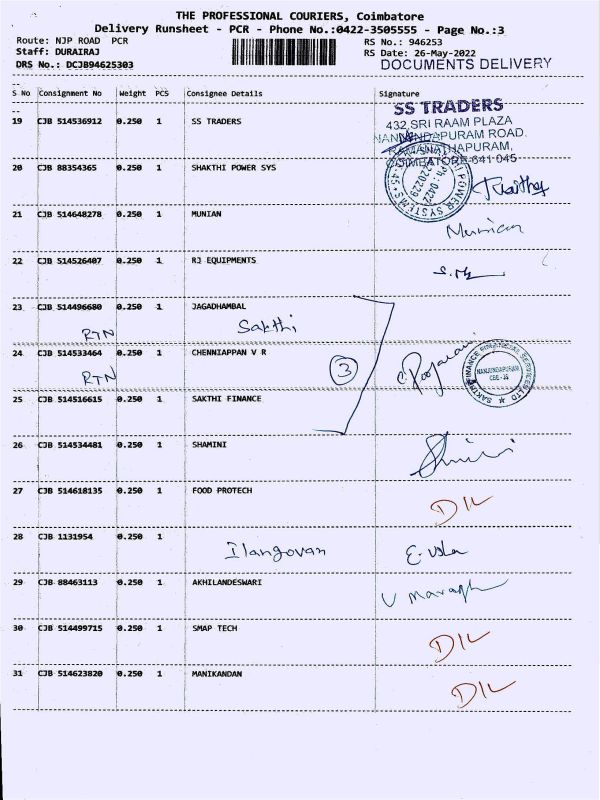 THE PROFESSIONAL COURIERS, Coimbatore
Delivery Runsheet - PCR - Phone No.:0422-3505555 - Page No.:3
Route: NJP ROAD PCR RS No.: 946253
Staff: DURAIRAJ RS Date: 26-May-2022
DRS No.: DCJB94625303 DOCUMENTS DELIVERY
S No Consignment No Weight PCS Consignee Details Signature
SS TRADERS
19 CJB 514536912 0.250 1 SS TRADERS 432, SRI RAAM PLAZA
NANJUNDAPURAM ROAD.
RAMANATHAPURAM,
COIMBATORE-641 045
20 CJB 88354365 0.250 1 SHAKTHI POWER SYS
POWER SYSTEMS
Ph : 0422
21 CJB 514648278 0.250 1 MUNIAN
Munian
22 CJB 514526407 0.250 1 RJ EQUIPMENTS
23 CJB 514496680 0.250 1 JAGADHAMBAL
RTN Sakthi
24 CJB 514533464 0.250 1 CHENNIAPPAN V R
RTN 3
SAKTHI FINANCE FINANCIAL SERVICES LTD
NANJUNDAPURAM
25 CJB 514516615 0.250 1 SAKTHI FINANCE
26 CJB 514534481 0.250 1 SHAMINI
27 CJB 514618135 0.250 1 FOOD PROTECH
D/L
28 CJB 1131954 0.250 1
Ilangovan
29 CJB 88463113 0.250 1 AKHILANDESWARI
30 CJB 514499715 0.250 1 SMAP TECH
D/L
31 CJB 514623820 0.250 1 MANIKANDAN
D/L